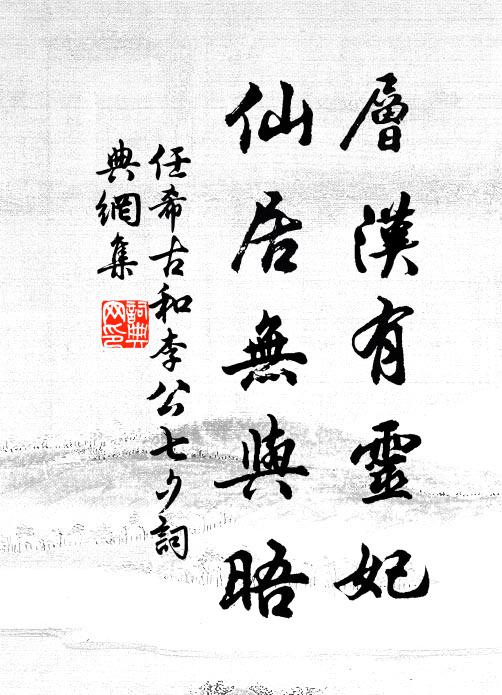 層漢有靈妃
仙居無與晤
任希古和李公七夕詞
典網集
詞典
网印